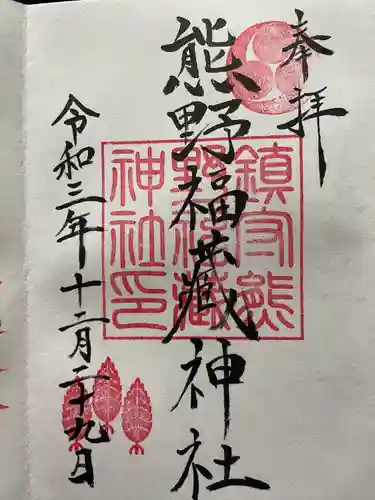 奉拝
熊野福藏神社
鎮守熊
野福藏
神社印
令和三年十二月二十九日